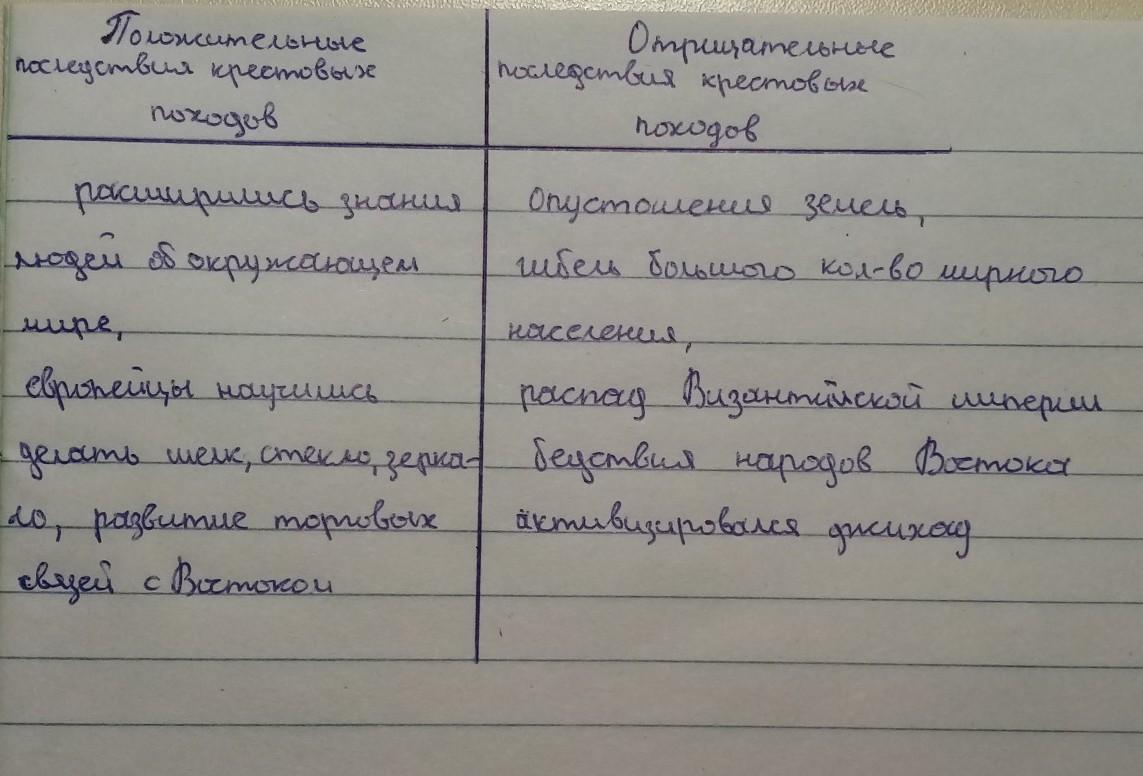 Положительные
последствия крестовых
походов
расширились знания
людей об окружающем
мире,
европейцы научились
делать шелк, стекло, зерка-
ло, развитие торговых
связей с Востоком
Отрицательные
последствия крестовых
походов
Опустошения земель,
гибель большого кол-во мирного
населения,
распад Византийской империи
бедствия народов Востока
активизировался джихад